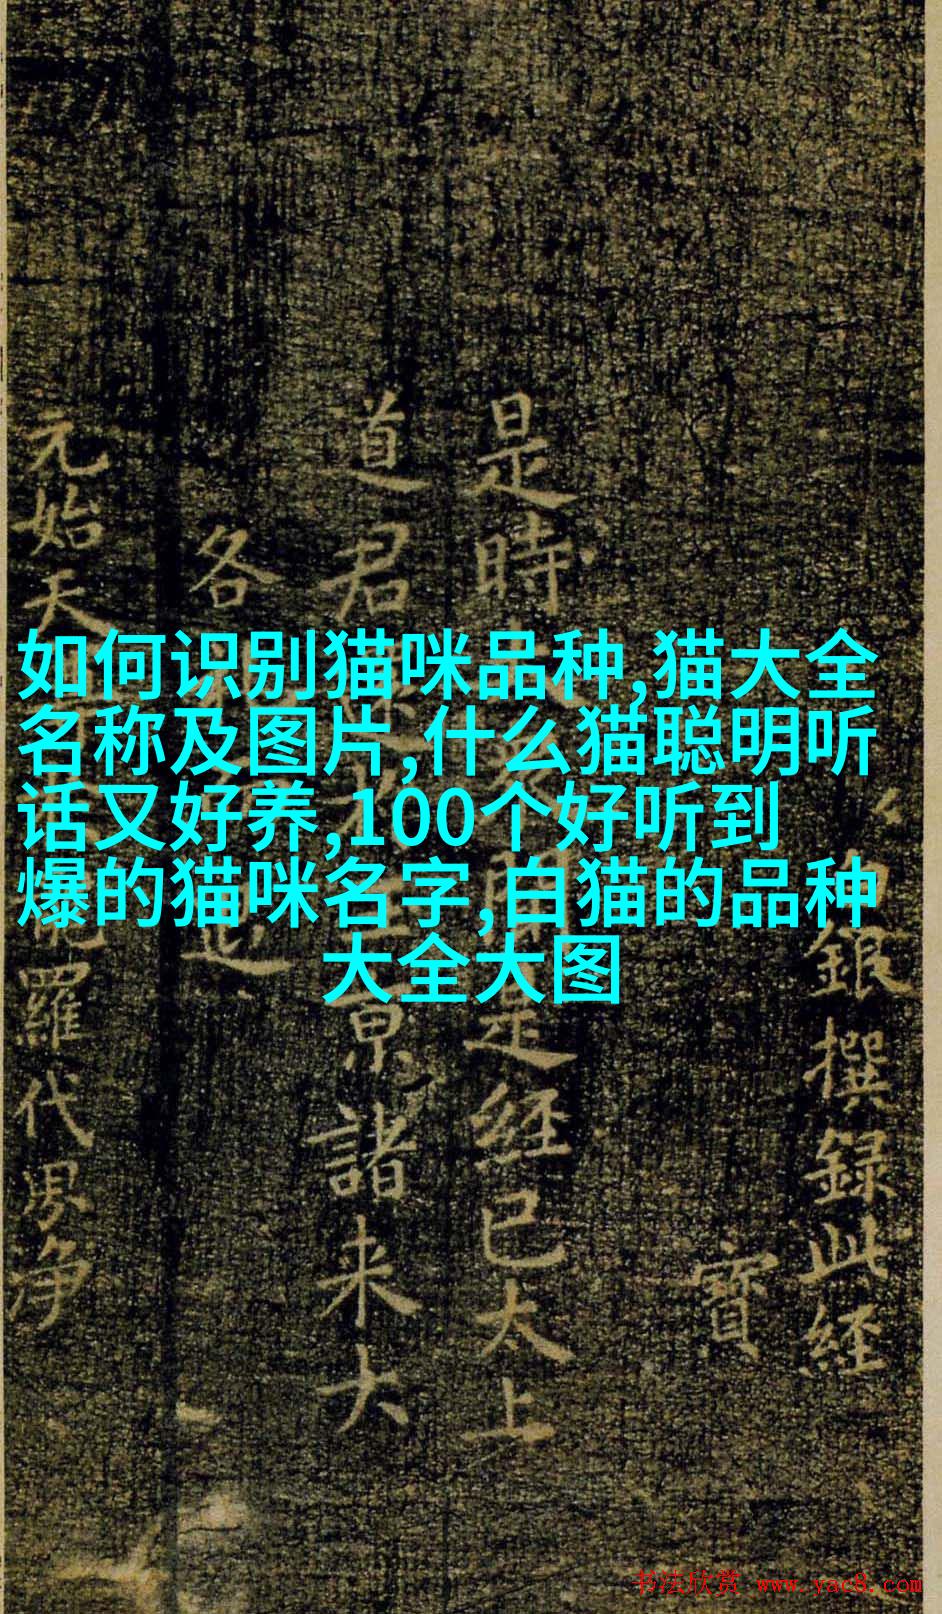 如何识别猫咪品种,猫大全
名称及图片,什么猫聪明听
话又好养,100个好听到
爆的猫咪名字,白猫的品种
大全大图
銀撰録此經
寶
是時
是經已太上
道君
京諸来大
各
元始天
羅代界净
书法欣赏 www.yac8.com